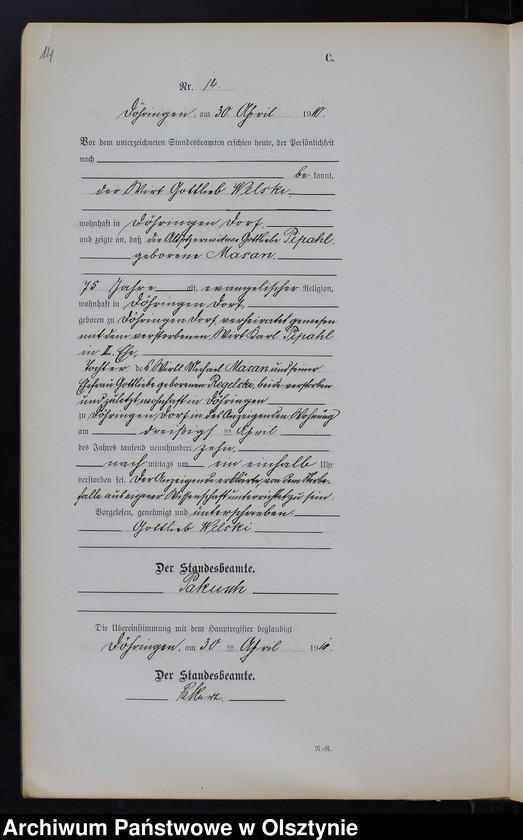 14
C.
Nr. 14.
Döhringen, am 30 April 1910.
Vor dem unterzeichneten Standesbeamten erschien heute, der Persönlichkeit
nach
be kannt,
der Wirt Gottlieb Welski
wohnhaft in Döhringen Dorf
und zeigte an, daß die Altsitzerwitwe Gottliebe Pipahl
geborene Masan
75 Jahre alt, evangelischer Religion,
wohnhaft in Döhringen Dorf,
geboren zu Döhringen Dorf verheiratet gewesen
mit dem verstorbenen Wirt Karl Pipahl
in II. Ehe,
Tochter des Wirts Michael Masan und seiner
Ehefrau Gottliebe geborenen Regelski, beide verstorben
und zuletzt wohnhaft in Döhringen
zu Döhringen Dorf in des Anzeigenden Wohnung
am dreißigsten April
des Jahres tausend neunhundert zehn
nach mittags um ein einhalb Uhr
verstorben sei. Der Anzeigende erklärte, von dem Sterbe-
falle aus eigener Wissenschaft unterrichtet zu sein.
Vorgelesen, genehmigt und unterschrieben.
Gottlieb Welski
Der Standesbeamte.
Pakusch
Die Übereinstimmung mit dem Hauptregister beglaubigt
Döhringen, am 30 April 1910.
Der Standesbeamte.
N.-R.
Archiwum Państwowe w Olsztynie